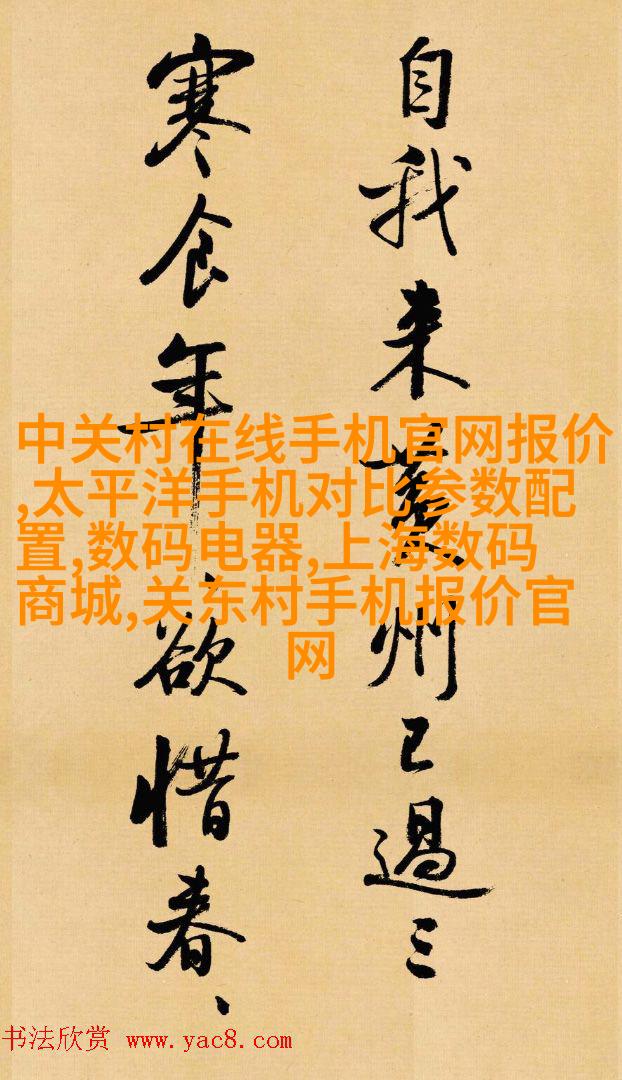 自我来黄州已過三
寒食年年欲惜春、
中关村在线手机官网报价
,太平洋手机对比参数配
置,数码电器,上海数码
商城,关东村手机报价官
网
书法欣赏 www.yac8.com